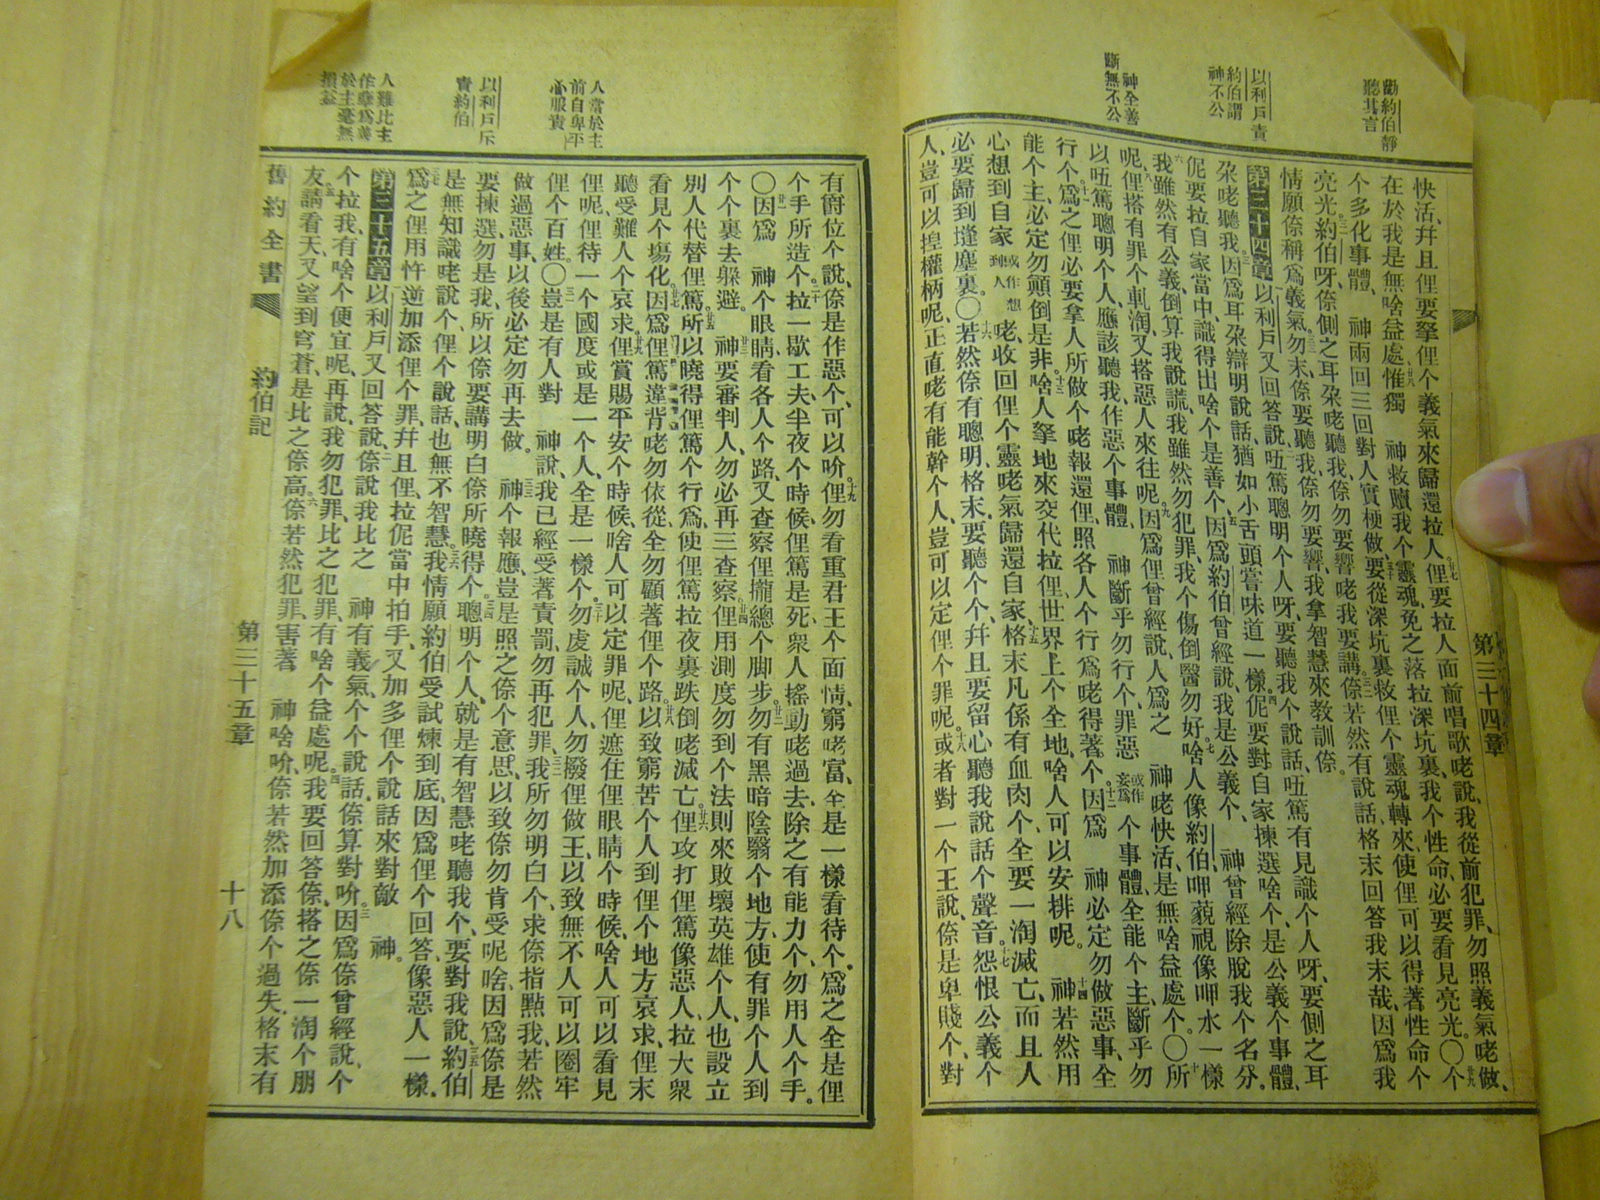 勸約伯靜
聽其言
以利戶責
約伯謂
神不公
神全善
斷無不公
第三十四章
快活、幷且俚要拏俚个義氣來歸還拉人、廿七俚要拉人面前唱歌咾說、我從前犯罪、勿照義氣咾做、
在於我是無啥益處、廿八惟獨 神救贖我个靈魂、免之落拉深坑裏、我个性命、必要看見亮光。〇廿九个
个多化事體、 神兩回三回對人實梗做、三十要從深坑裏救俚个靈魂轉來、使俚可以得著性命个
亮光、三一約伯呀、㑚側之耳朶咾聽我、㑚勿要響咾我要講、三二㑚若然有說話、格末回答我末哉、因爲我
情願㑚稱爲義氣。三三勿末、㑚要聽我、㑚勿要響、我拿智慧來教訓㑚。
第三十四章 以利戶又回答說、二㕶篤聰明个人呀、要聽我个說話、㕶篤有見識个人呀、要側之耳
朶咾聽我、三因爲耳朶辯明說話、猶如小舌頭嘗味道一樣。四伲要對自家揀選啥个、是公義个事體、
伲要拉自家當中、識得出啥个是善个、五因爲約伯曾經說、我是公義个、 神曾經除脫我个名分。
六我雖然有公義、倒算我說謊、我雖然勿犯罪、我个傷倒醫勿好、七啥人像約伯、呷藐視像呷水一樣
呢、八俚搭有罪个軋淘、又搭惡人來往呢、九因爲俚曾經說、人爲之 神咾快活、是無啥益處个。〇十所
以㕶篤聰明个人、應該聽我、作惡个事體、 神斷乎勿行个、罪惡或作妄爲个事體、全能个主、斷乎勿
行个、十一爲之俚必要拿人所做个咾報還俚、照各人个行爲咾得著个。十二因爲 神必定勿做惡事、全
能个主、必定勿顚倒是非。十三啥人拏地來交代拉俚、世界上个全地、啥人可以安排呢。十四神若然用
心想到自家、或作想到人咾收回俚个靈咾氣歸還自家、十五格末凡係有血肉个、全要一淘滅亡、而且人
必要歸到塳塵裏。〇十六若然㑚有聰明、格末要聽个个、幷且要留心聽我說話个聲音。十七怨恨公義个
人、豈可以揑權柄呢、正直咾有能幹个人、豈可以定俚个罪呢。十八或者對一个王說、㑚是卑賤个、對
人當於主
前自卑平
心服責
以利戶斥
責約伯
人難比主
作孽爲義
於主毫無
損益
有爵位个說、㑚是作惡个、可以吤。十九俚勿看重君王个面情、窮咾富、全是一樣看待个、爲之全是俚
个手所造个。二十拉一歇工夫、半夜个時候、俚篤是死、衆人搖動咾過去、除之有能力个、勿用人个手。
〇廿一因爲 神个眼睛、看各人个路、又查察俚攏總个脚步。廿二勿有黑暗陰翳个地方、使有罪个人到
个个裏去躲避。廿三 神要審判人、勿必再三查察、廿四俚用測度勿到个法則來敗壞英雄个人、也設立
別人代替俚篤、廿五所以曉得俚篤个行爲、使俚篤拉夜裏跌倒咾滅亡。廿六俚攻打俚篤像惡人、拉大衆
看見个塲化、廿七因爲俚篤違背咾勿依從、全勿顧著俚个路、廿八以致窮苦个人到俚个地方哀求、俚末
聽受難人个哀求。廿九俚賞賜平安个時候、啥人可以定罪呢、俚遮住俚眼睛个時候、啥人可以看見
俚呢、俚待一个國度、或是一个人、全是一樣个、三十勿虔誠个人、勿撥俚做王、以致無不人可以圈牢
俚个百姓。〇三一豈是有人對 神說、我已經受著責罰、勿再犯罪、三二我所勿明白个、求㑚指點我、若然
做過惡事、以後必定勿再去做。三三 神个報應、豈是照之㑚个意思、以致㑚勿肯受呢、啥因爲㑚是
要揀選、勿是我、所以㑚要講明白㑚所曉得个、三四聰明个人、就是有智慧咾聽我个、要對我說、三五約伯
是無知識咾說个、俚个說話、也無不智慧。三六我情願約伯受試煉到底、因爲俚个回答、像惡人一樣。
三七爲之俚用忤逆加添俚个罪、幷且俚拉伲當中拍手、又加多俚个說話來對敵 神。
第三十五章 以利戶又回答說、二㑚說我比之 神有義氣、个个說話、㑚算對吤。三因爲㑚曾經說、个
个拉我有啥个便宜呢、再說、我勿犯罪、比之犯罪、有啥个益處呢。四我要回答㑚、搭之㑚一淘个朋
友。五請看天、又望到穹蒼、是比之㑚高。六㑚若然犯罪、害著 神啥吤、㑚若然加添㑚个過失、格末有
舊約全書 約伯記 第三十五章 十八